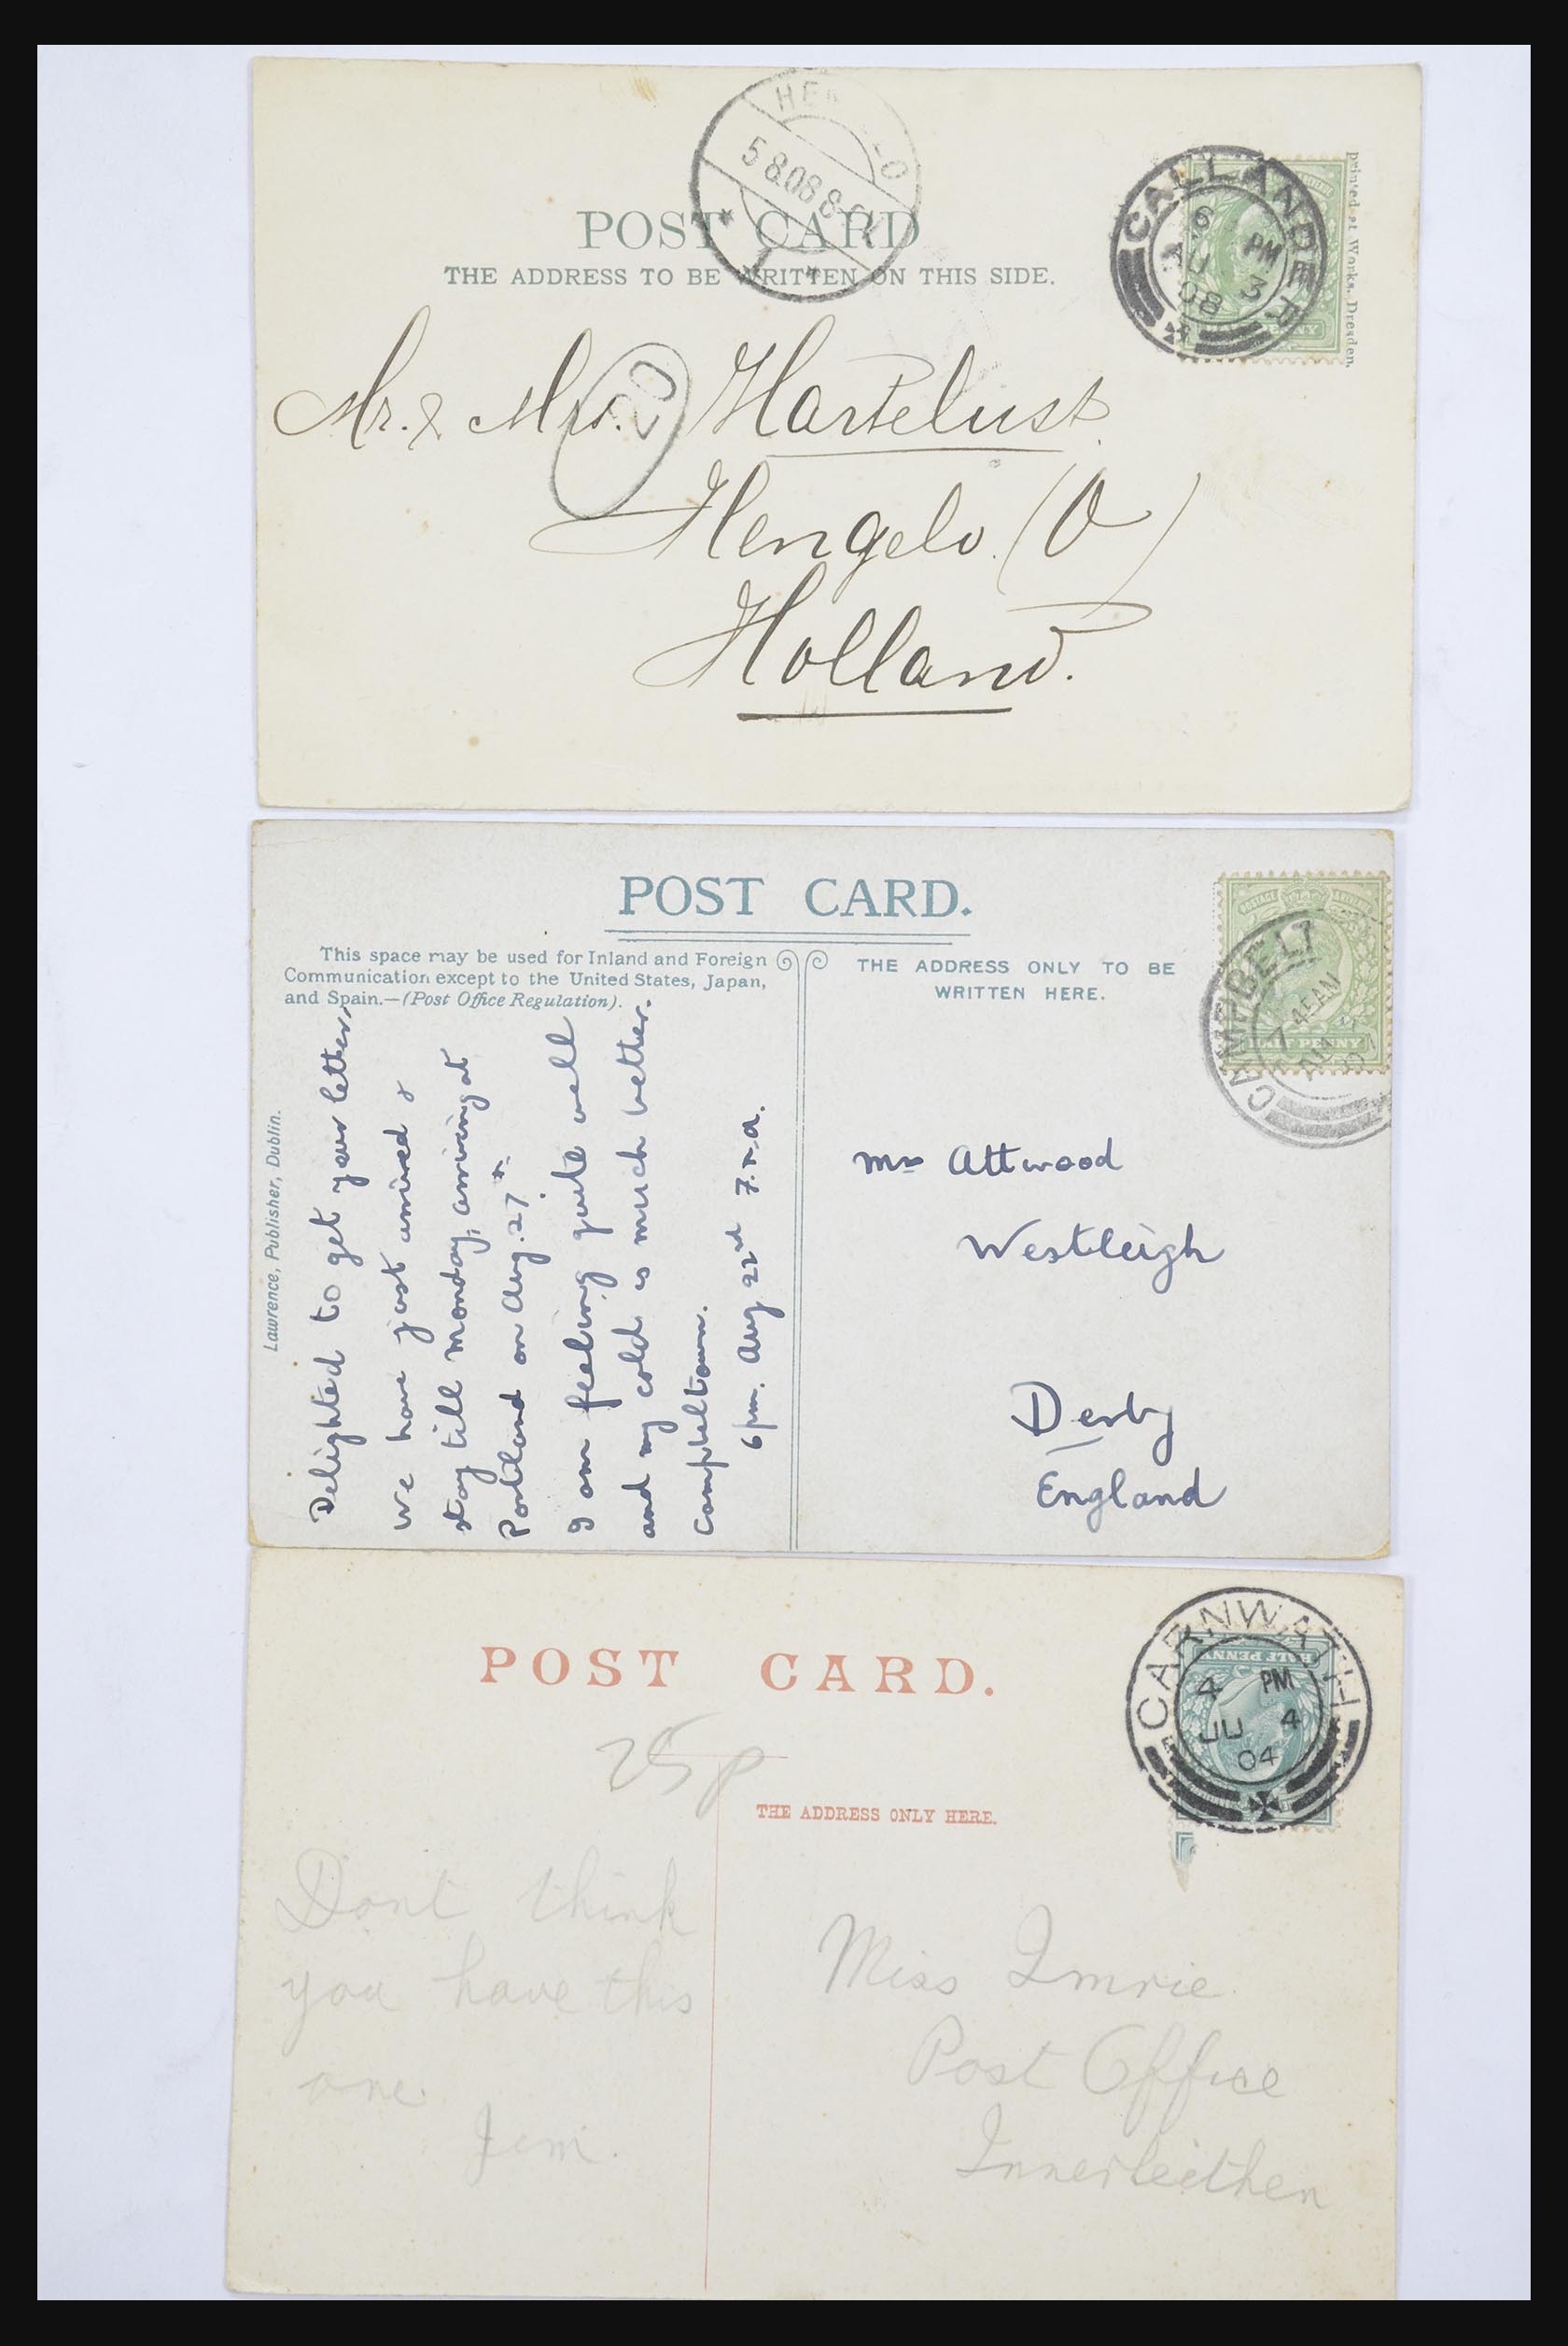 HEN -O
5 8.08 8-
1
CALLANDER
6 PM
AU 3
08
PENNY
Printed at Works, Dresden.
POST CARD
THE ADDRESS TO BE WRITTEN ON THIS SIDE.
20
Mr. & Mrs. Hartelust.
Hengelo. (O)
Holland.
POST CARD.
This space may be used for Inland and Foreign
Communication except to the United States, Japan,
and Spain.—(Post Office Regulation).
THE ADDRESS ONLY TO BE
WRITTEN HERE.
POSTAGE
HALF PENNY
CAMPBELT
7 45AM
Lawrence, Publisher, Dublin.
Delighted to get your letters,
we have just arrived &
stay till Monday, arriving at
Portland on Aug. 27th.
I am feeling quite well
and my cold is much better.
Campbeltown.
6 pm. Aug 22nd F.R.A.
Mrs Attwood
Westleigh
Derby
England
POST CARD.
25p
THE ADDRESS ONLY HERE.
HALF PENNY
CARNWATH
4 PM
JU 4
04
Dont think
you have this
one.
Jim.
Miss Imrie
Post Office
Innerleithen